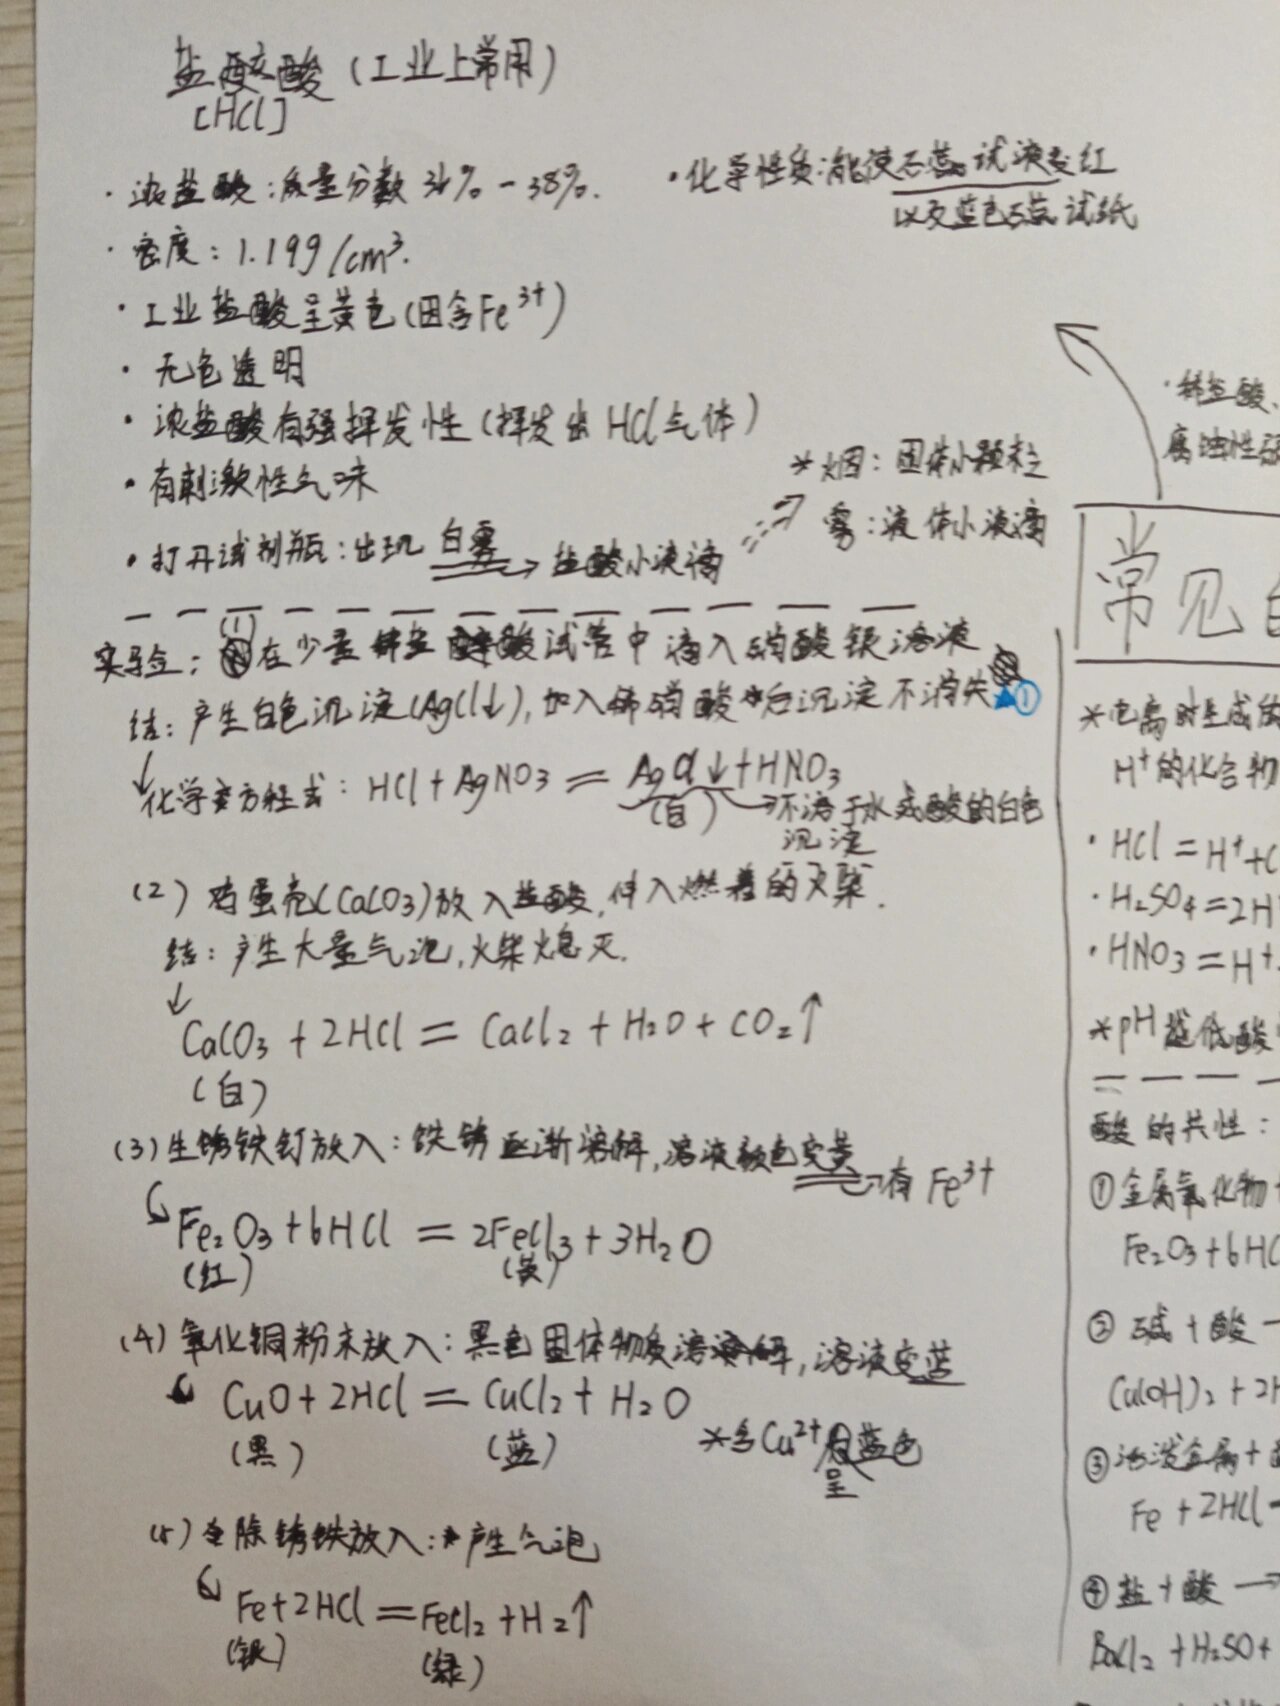 盐酸（工业上常用）
[HCl]
· 浓盐酸：质量分数 36% - 38%.
· 密度：1.19g/cm³.
· 工业盐酸呈黄色（因含Fe³⁺）
· 无色透明
· 浓盐酸有强挥发性（挥发出HCl气体）
· 有刺激性气味
· 打开试剂瓶：出现白雾 → 盐酸小液滴
· 化学性质：能使石蕊试液变红
以及蓝色石蕊试纸
*烟：固体小颗粒
雾：液体小液滴
实验：(1) 在少量稀盐酸试管中滴入硝酸银溶液
结：产生白色沉淀(AgCl↓)，加入稀硝酸后沉淀不消失 ①
化学方程式：HCl + AgNO₃ = AgCl↓ + HNO₃
(白) → 不溶于水或酸的白色
沉淀
(2) 鸡蛋壳(CaCO₃)放入盐酸，伸入燃着的火柴.
结：产生大量气泡，火柴熄灭.
CaCO₃ + 2HCl = CaCl₂ + H₂O + CO₂↑
(白)
(3) 生锈铁钉放入：铁锈逐渐溶解，溶液颜色变黄 → 有 Fe³⁺
Fe₂O₃ + 6HCl = 2FeCl₃ + 3H₂O
(红) (黄)
(4) 氧化铜粉末放入：黑色固体物质溶解，溶液变蓝
CuO + 2HCl = CuCl₂ + H₂O
(黑) (蓝)
*含Cu²⁺呈蓝色
(5) 除锈铁放入：产生气泡
Fe + 2HCl = FeCl₂ + H₂↑
(银) (绿)
· 稀盐酸、
腐蚀性强
常见
*电离时生成
H⁺的化合物
· HCl = H⁺ + C
· H₂SO₄ = 2H
· HNO₃ = H⁺
*pH越低酸
酸的共性：
① 金属氧化物 +
Fe₂O₃ + 6HC
② 碱 + 酸 →
Cu(OH)₂ + 2H
③ 活泼金属 +
Fe + 2HCl
④ 盐 + 酸 →
BaCl₂ + H₂SO₄